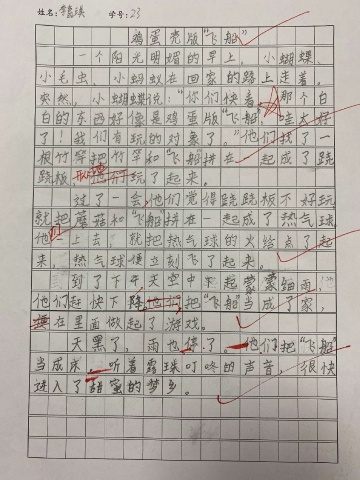 姓名: 学号: 23
鸡蛋壳版“飞船”
一个阳光明媚的早上，小蝴蝶、
小毛虫、小蚂蚁在回家的路上走着。
突然，小蝴蝶说：“你们快看，那个白
白的东西好像是鸡蛋版“飞船”，哇太好
了！我们有玩的对象了。”他们找了一
根竹竿把竹竿和“飞船”拼在一起成了跷
跷板，玩了起来。
过了一会，他们觉得跷跷板不好玩
就把蘑菇和“飞船”拼在一起成了热气球
他们上去，就把热气球的火给点了起
来，热气球便立刻飞了起来。
到了下午天空中下起蒙蒙细雨，
他们赶快下降，他们把“飞船”当成了家，
在里面做起了游戏。
天黑了，雨也停了。他们把“飞船”
当成床，听着露珠叮咚的声音，很快
进入了甜蜜的梦乡。